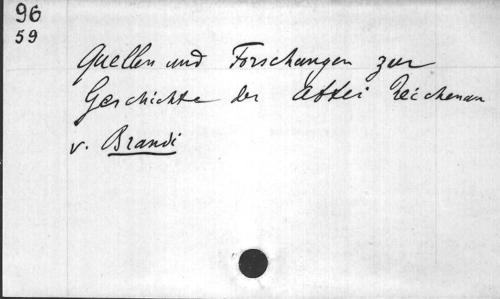 96
59
Quellen und Forschungen zur
Geschichte der Abtei Reichenau
v. Brandi